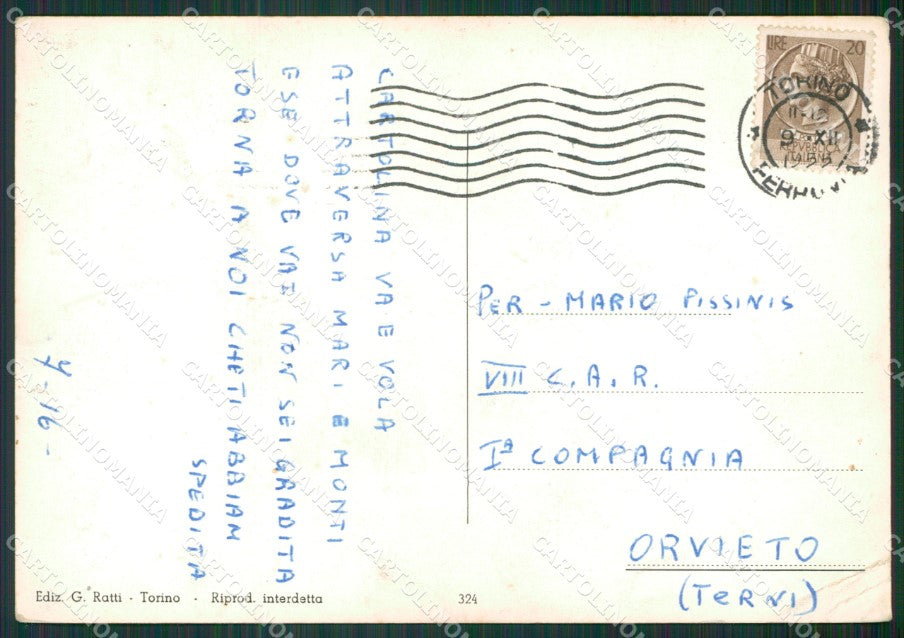 CARTOLINA VA E VOLA
ATTRAVERSA MARI E MONTI
ESE DOVE VAI NON SEI GRADITA
TORNA A NOI CHETIABBIAM
SPEDITA
LIRE 20
TORINO
9 - XII
FERROVIA
PER - MARIO PISSINIS
VIII C. A. R.
Iª COMPAGNIA
ORVIETO
(TERNI)
Ediz. G. Ratti - Torino - Riprod. interdetta
324
CARTOLINOMANIA